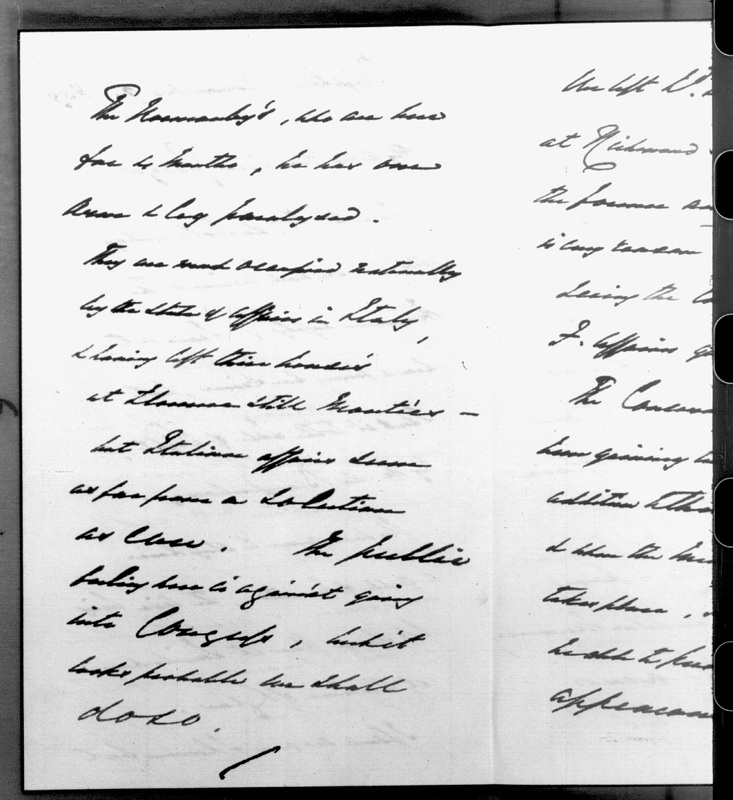 The Normanby's, who are here
for 4 months, he has one
arm & leg paralysed.
They are much occupied naturally
by the state of affairs in Italy,
& having left their house's
at Florence still Monties —
but Italian affairs seem
as far from a solution
as ever. The public
feeling here is against going
into Congress, but it
looks probable we shall
do so.
We left Ld.
at Richmond
the former
is any reason
seeing the
F. Affairs
The
been gaining
addition
& when the
takes place,
he
appearan